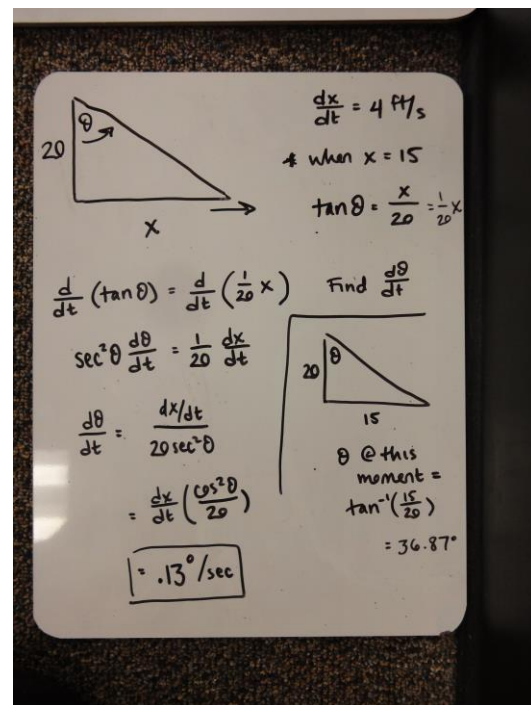 20
θ
x
dx/dt = 4 ft/s
* when x = 15
tan θ = x/20 = 1/20 x
Find dθ/dt
d/dt (tan θ) = d/dt (1/20 x)
sec²θ dθ/dt = 1/20 dx/dt
dθ/dt = dx/dt / 20 sec²θ
= dx/dt (cos²θ/20)
= .13°/sec
20
θ
15
θ @ this
moment =
tan⁻¹(15/20)
= 36.87°